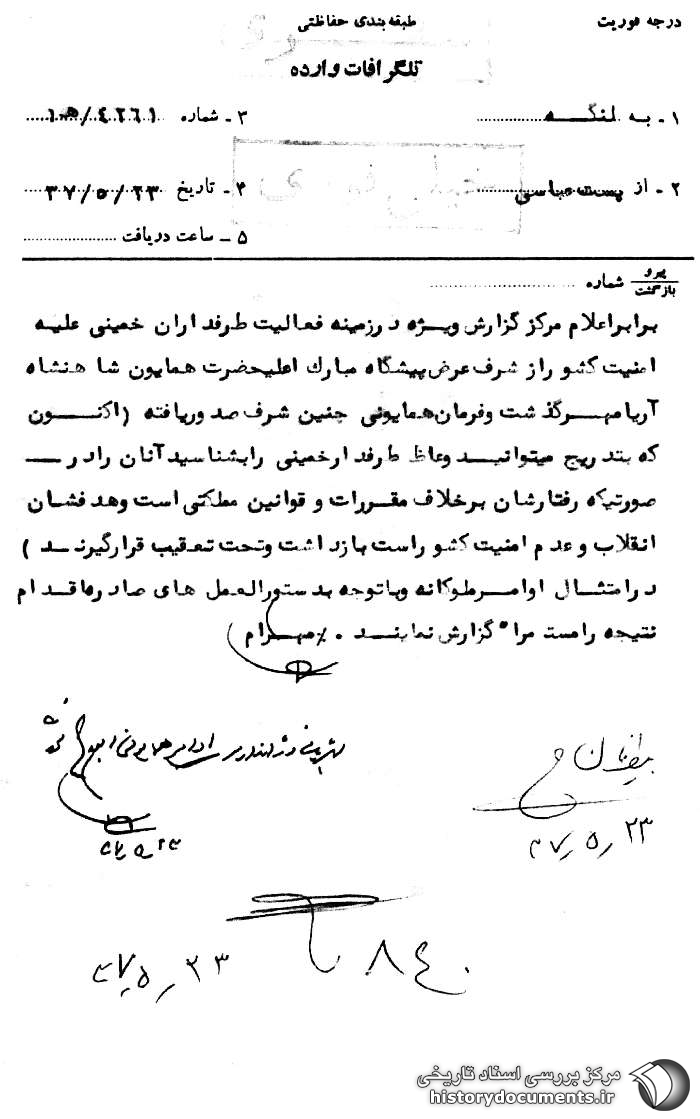 درجه فوریت
طبقه بندی حفاظتی
تلگرافات وارده
۱ - به لنگه
۳ - شماره ۱۰ﻫ/۴۲۶۱
۲ - از بست عباسی
۴ - تاریخ ۳۷/۵/۲۳
۵ - ساعت دریافت
پیرو
بازگشت
شماره
برابر اعلام مرکز گزارش ویژه در زمینه فعالیت طرفداران خمینی علیه
امنیت کشور از شرف عرض پیشگاه مبارک اعلیحضرت همایون شاهنشاه
آریامهر گذشت و فرمان همایونی چنین شرف صدور یافته (اکنون
که بتدریج میتوانید وعاظ طرفدار خمینی را بشناسید آنان را در
صورتیکه رفتارشان برخلاف مقررات و قوانین مملکتی است و هدفشان
انقلاب و عدم امنیت کشور است بازداشت و تحت تعقیب قرار گیرند )
در امتثال اوامر ملوکانه و باتوجه بدستورالعمل های صادره اقدام
نتیجه را مستمرا" گزارش نمایند . %مهرام
۳۷٫۵٫۲۳
۳۷٫۵٫۲۳
۸۴۰
۳۷٫۵٫۲۳
مرکز بررسی اسناد تاریخی
historydocuments.ir